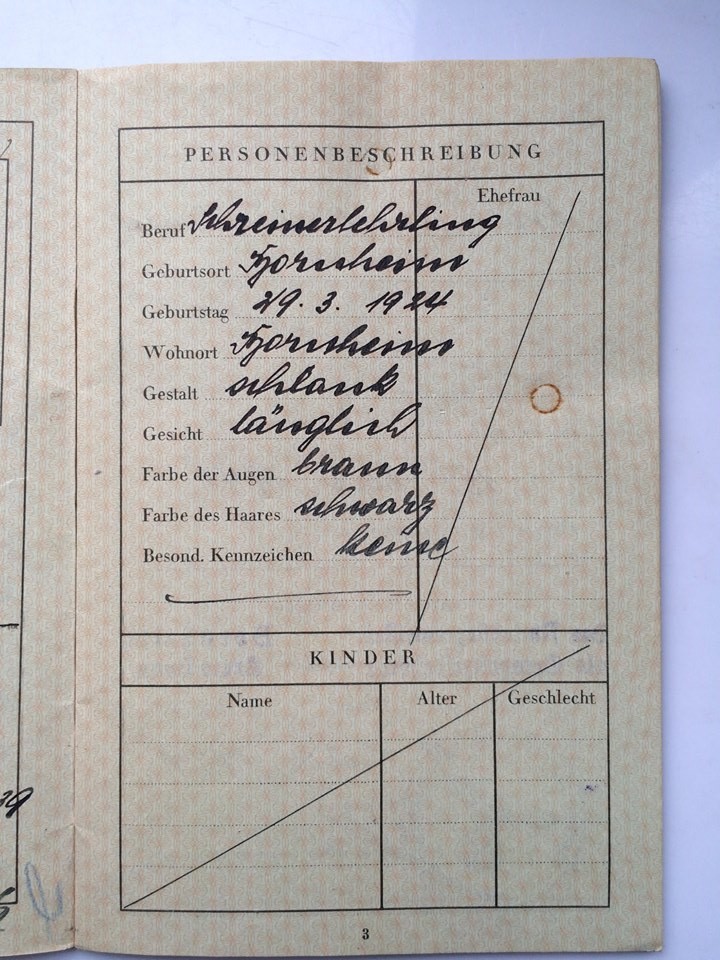 PERSONENBESCHREIBUNG
Ehefrau
Beruf Schreinerlehrling
Geburtsort
Geburtstag 29. 3. 1924
Wohnort
Gestalt schlank
Gesicht länglich
Farbe der Augen braun
Farbe des Haares schwarz
Besond. Kennzeichen keine
KINDER
Name Alter Geschlecht
39
3